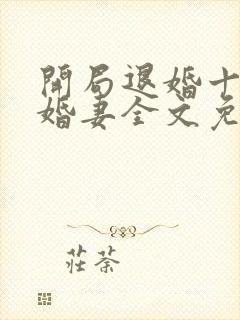 開局退婚十
婚妻全文免
莊荼